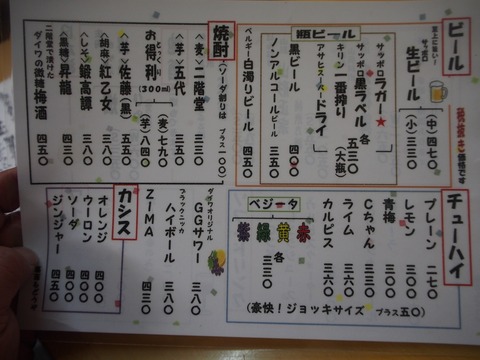 ビール
至上に旨い!
サッポロ
生ビール
(中)四七〇
(小)三三〇
税抜き価格です
瓶ビール
サッポロ ラガー★
サッポロ 黒ラベル
キリン 一番搾り
アサヒスーパードライ
各五三〇
(大瓶)
黒ビール 四〇〇
ノンアルコールビール 三五〇
ベルギー 白濁りビール 四五〇
焼酎
(ソーダ割りはプラス一〇〇)
〈麦〉二階堂 三三〇
〈芋〉五代 三三〇
お得利(300ml)
とっくり
(麦)七九〇
(芋)八四〇
〈芋〉佐藤(黒) 五五〇
〈胡麻〉紅乙女 三八〇
〈しそ〉鍛高譚 三八〇
〈黒糖〉昇龍 四三〇
二階堂で漬けた
ダイワの微糖梅酒 四五〇
チューハイ
プレーン 二七〇
レモン 三〇〇
青梅 三〇〇
Cちゃん 三三〇
ライム 三三〇
カルピス 三六〇
ベジータ
赤
黄
緑
紫
各三三〇
(豪快!ジョッキサイズ プラス五〇)
ダイワオリジナル
GGサワー 三八〇
ブラックニッカ
ハイボール 三八〇
ZIMA 四三〇
カシス
オレンジ 四〇〇
ウーロン 四〇〇
ソーダ 四〇〇
ジンジャー 四五〇